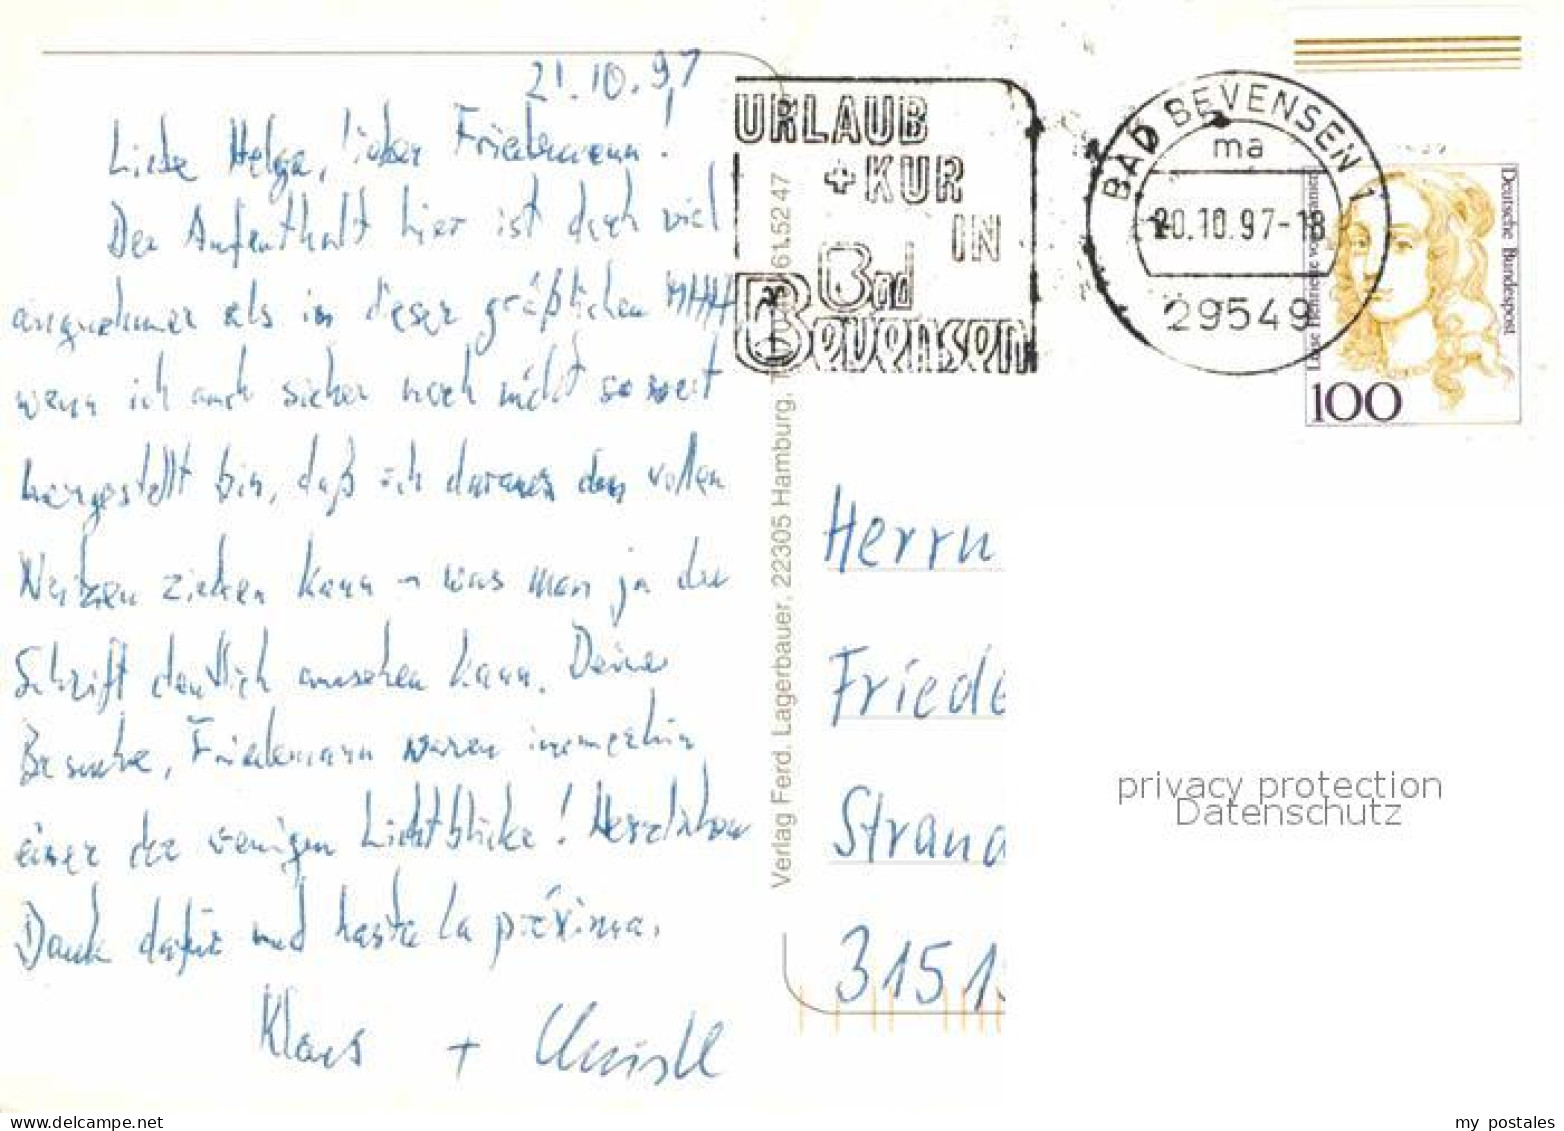 21.10.97
Liebe Helga, lieber Friedemann!
Der Aufenthalt hier ist doch viel
angenehmer als in dieser gräßlichen MHH
wenn ich auch sicher noch nicht so weit
hergestellt bin, daß ich daraus den vollen
Nutzen ziehen kann – was man ja der
Schrift deutlich ansehen kann. Deine
Besuche, Friedemann waren immerhin
einer der wenigen Lichtblicke! Herzlichen
Dank dafür und hasta la próxima.
Klaus + Christl
Verlag Ferd. Lagerbauer, 22305 Hamburg, 61 52 47
URLAUB
+ KUR
IN
Bad
Bevensen
BAD BEVENSEN 1
ma
20.10.97-18
29549
Deutsche Bundespost
Luise Henriette von Oranien
100
Herrn
Friede
Strand
3151
privacy protection
Datenschutz
my postales